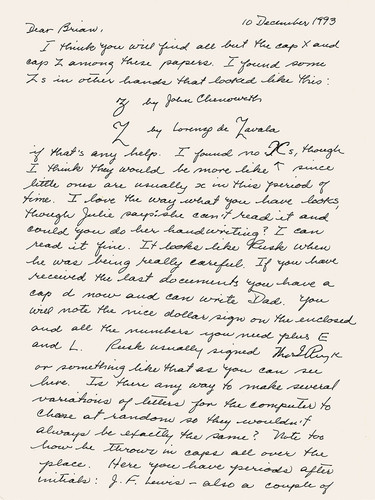 10 December 1993
Dear Brian,
I think you will find all but the cap X and
cap Z among these papers. I found some
Zs in other hands that looked like this:
Z by John Chenoweth
Z by Lorenzo de Zavala
if that's any help. I found no Xs, though
I think they would be more like X since
little ones are usually x in this period of
time. I love the way what you have looks,
though Julie says she can't read it and
could you do her handwriting? I can
read it fine. It looks like Rusk when
he was being really careful. If you have
received the last documents you have a
cap d now and can write Dad. You
will note the nice dollar sign on the enclosed
and all the numbers you need plus E
and L. Rusk usually signed Thos J Rusk
or something like that as you can see
here. Is there any way to make several
variations of letters for the computer to
chose at random so they wouldn't
always be exactly the same? Note too
how he throws in caps all over the
place. Here you have periods after
initials: J. F. Lewis - also a couple of